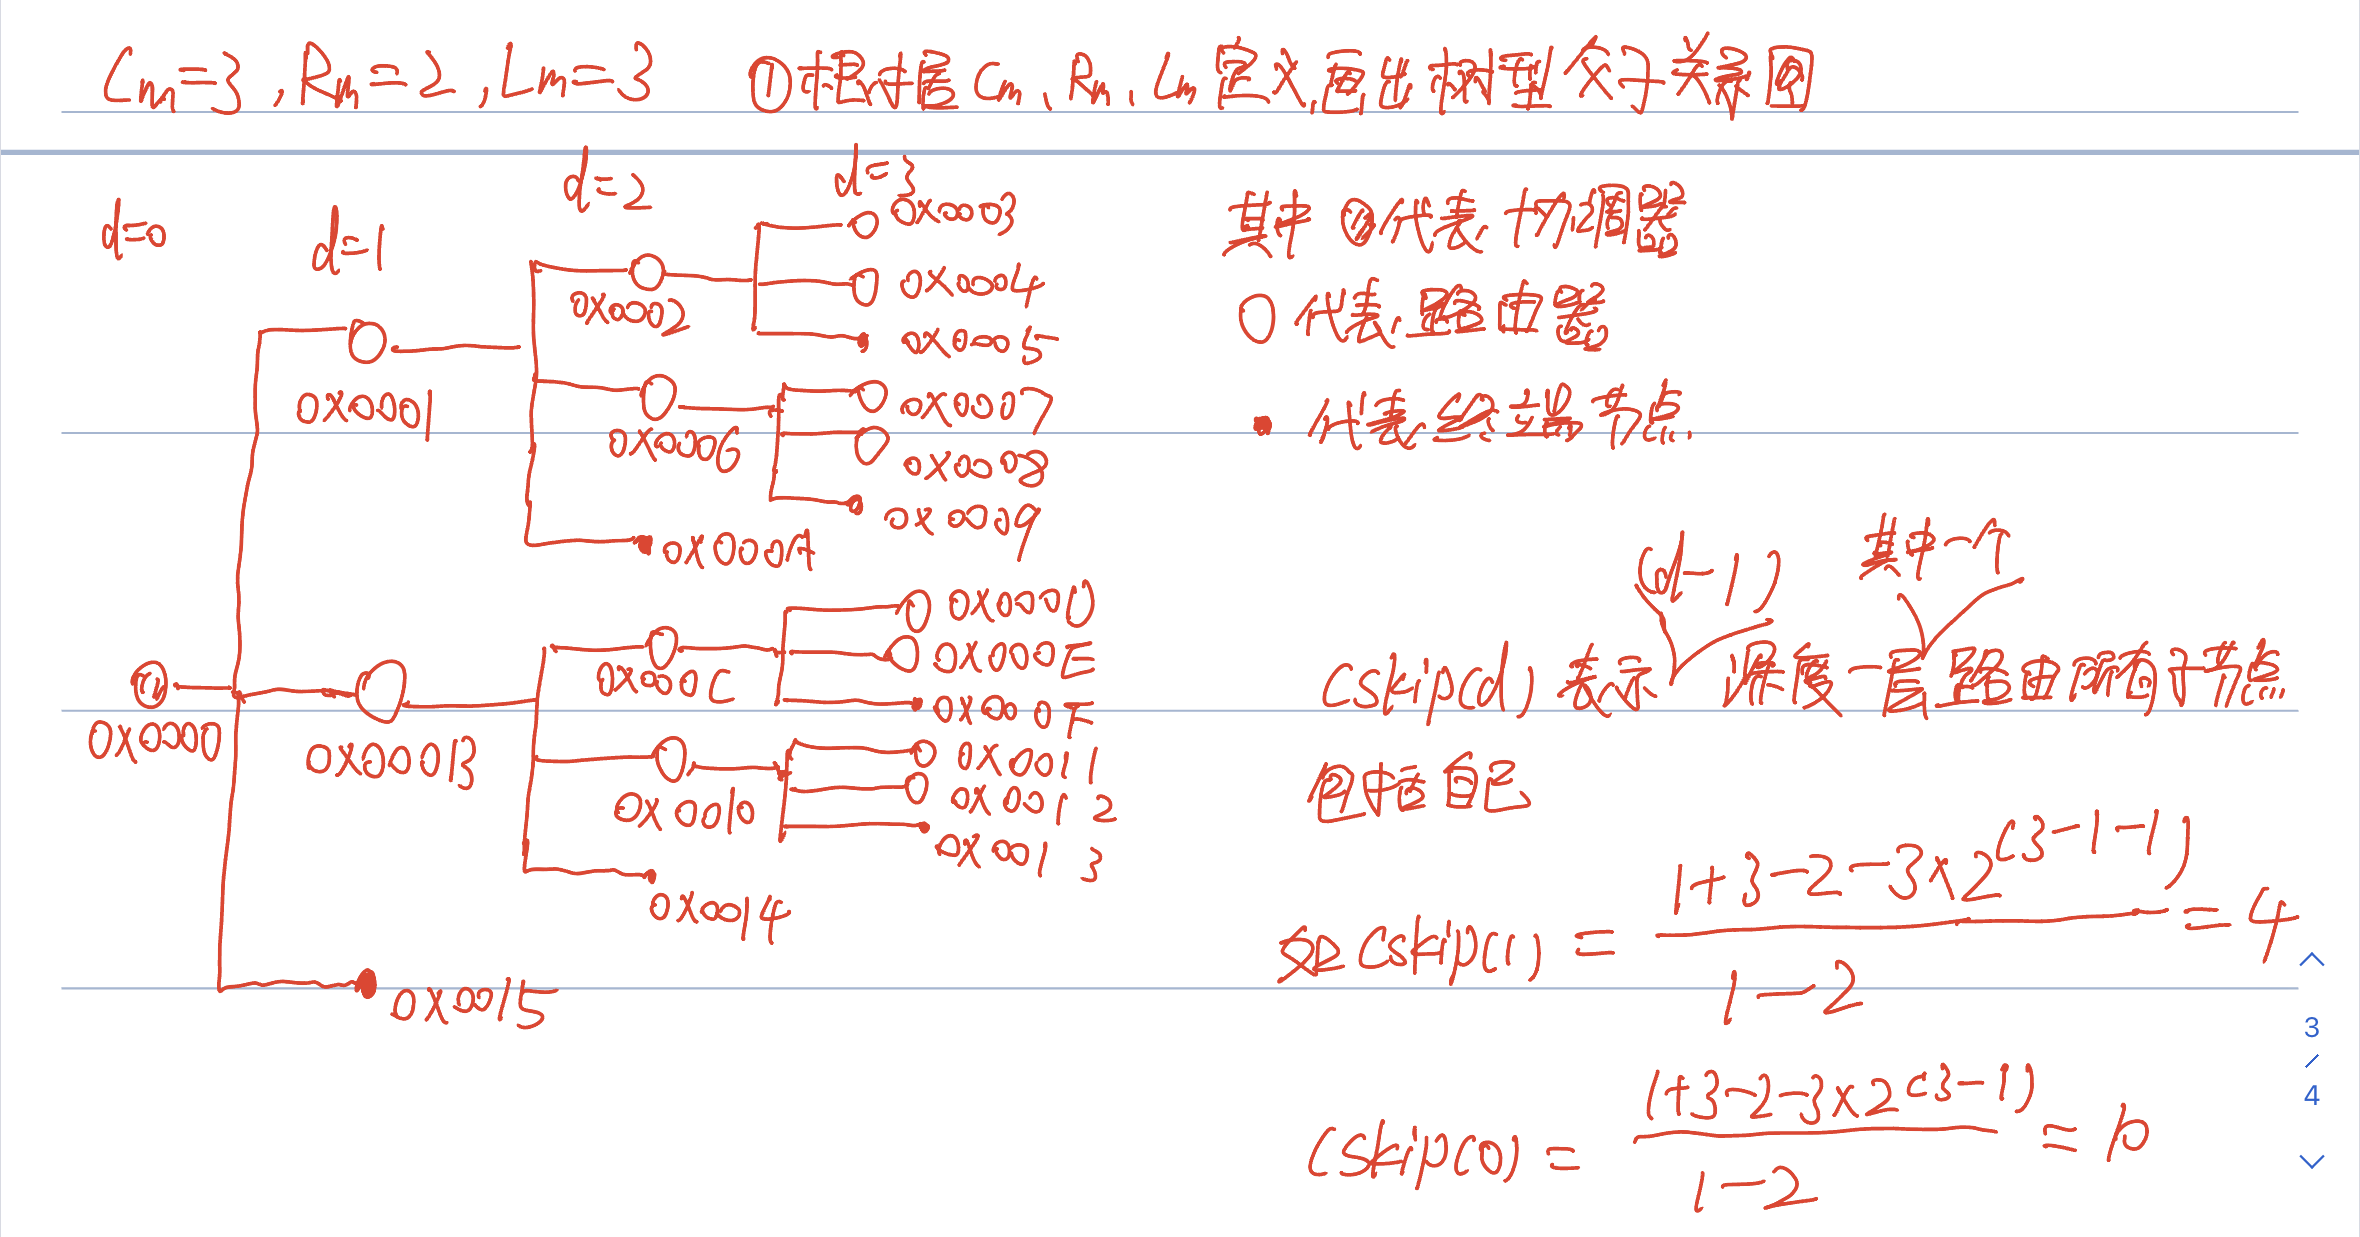 Cm=3,Rm=2,Lm=3 ①根据Cm、Rm、Lm定义,画出树型父子关系图
d=0 d=1 d=2 d=3
0x0003
0x0004
0x0002
0x0005
0x0001
0x0007
0x0006
0x0008
0x0009
0x000A
0x000D
0x000E
0x000C
0x000F
0x0000
0x000B
0x0011
0x0010
0x0012
0x0013
0x0014
0x0015
其中 代表协调器
○代表路由器
• 代表终端节点
(d-1) 其中一个
Cskip(d)表示 深度一层路由所有子节点
包括自己
如Cskip(1) = 1+3-2-3×2^(3-1-1) / 1-2 = 4
Cskip(0) = 1+3-2-3×2^(3-1) / 1-2 = 10
3
/
4